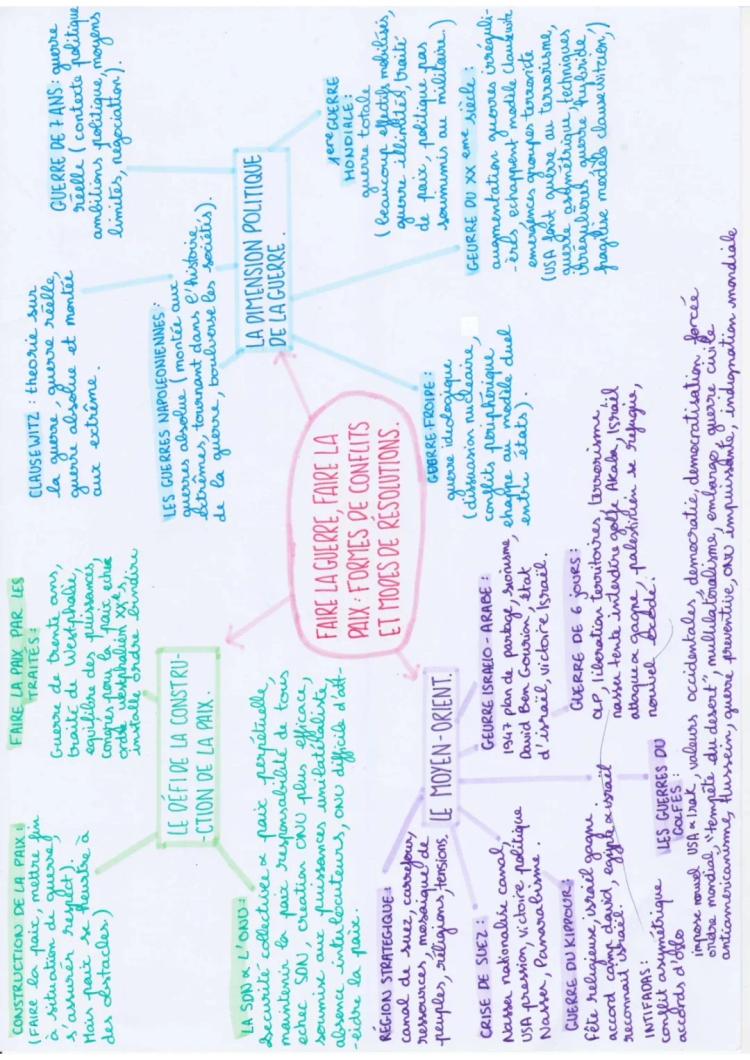 FAIRE LA GUERRE, FAIRE LA
PAIX : FORMES DE CONFLITS
ET MODES DE RÉSOLUTIONS.
LE DÉFI DE LA CONSTRU-
-CTION DE LA PAIX.
CONSTRUCTION DE LA PAIX :
(FAIRE la paix, mettre fin
à situation de guerre,
s'assurer respect).
Mais paix se heurte à
des obstacles)
FAIRE LA PAIX PAR LES
TRAITÉS :
Guerre de trente ans,
traité de Westphalie,
équilibre des puissances,
congrès pour la paix, echec
ordre westphalien XXe,
installe ordre
LA SDN & L'ONU :
sécurité collective & paix perpétuelle,
maintenir la paix responsabilité de tous
echec SDN, creation ONU plus efficace,
soumise aux puissances unilatéraliste,
absence interlocuteurs, ONU difficile d'att-
-eidre la paix.
LA DIMENSION POLITIQUE
DE LA GUERRE.
CLAUSEWITZ : theorie sur
la guerre, guerre réelle,
guerre absolue et montée
aux extrême.
GUERRE DE 7 ANS : guerre
réelle (contexte politique
ambitions politique, moyens
limités, négociation).
LES GUERRES NAPOLEONIENNES :
guerres absolue (montée aux
extrêmes, tournant dans l'histoire
de la guerre, boulverse les sociétés).
1ère GUERRE
MONDIALE :
guerre totale
(beaucoup effectifs mobilisés,
guerre illimitée, traité
de paix, politique pas
soumis au militaire.)
GEURRE-FROIDE :
guerre ideologique
(dissuasion nucleaire,
conflits peripherique
chappe au modèle duel
entre états).
GEURRE DU XX eme siècle :
augmentation guerres irreguli-
-ères echappent modèle Clausewitz
emergences groupes terroriste
(USA font guerre au terrorisme,
guerre asymétrique, techniques
irregulières, guerre hybride
fragilise modèle clausewitzien,)
LE MOYEN-ORIENT.
RÉGION STRATEGIQUE :
canal de suez, carrefour,
ressources, mosaique de
peuples, réligions, tensions.
CRISE DE SUEZ :
Nasser nationalise canal,
USA pression, victoire politique
Nasser, Panarabisme.
GUERRE DU KIPPOUR :
Fête religieuse, israël gagne
accord camp david, egypte & israël
reconnait israël.
INTIFADAS :
conflit assymétrique
accords d'Oslo
GEURRE ISRAELO-ARABE :
1947 plan de partage, sionisme,
David Ben Gourion, état
d'israël, victoire Israël.
GUERRE DE 6 JOURS :
OLP, liberation territoires, terrorisme,
nasser tente interdire golfe Akaba, Israël
attaque & gagne, palestinien se refugie,
nouvel
LES GUERRES DU
GOLFES :
impose nouvel USA & Irak, valeurs occidentales, democratie, democratisation forcée
ordre mondial, "tempête du desert", multilatéralisme, embargo, guerre civile
antiamericanisme, Hussein, guerre preventive, ONU impuissante, indignation mondiale